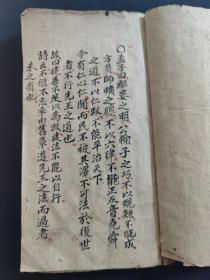 ○孟子曰離婁之明公輸子之巧不以規矩不能成
方員師曠之聰不以六律不能正五音堯舜
之道不以仁政不能平治天下
今有仁心仁聞而民不被其澤不可法於後世
者不行先王之道也
故曰徒善不足以為政徒法不能以自行
詩云不愆不忘率由舊章遵先王之法而過者
未之有也